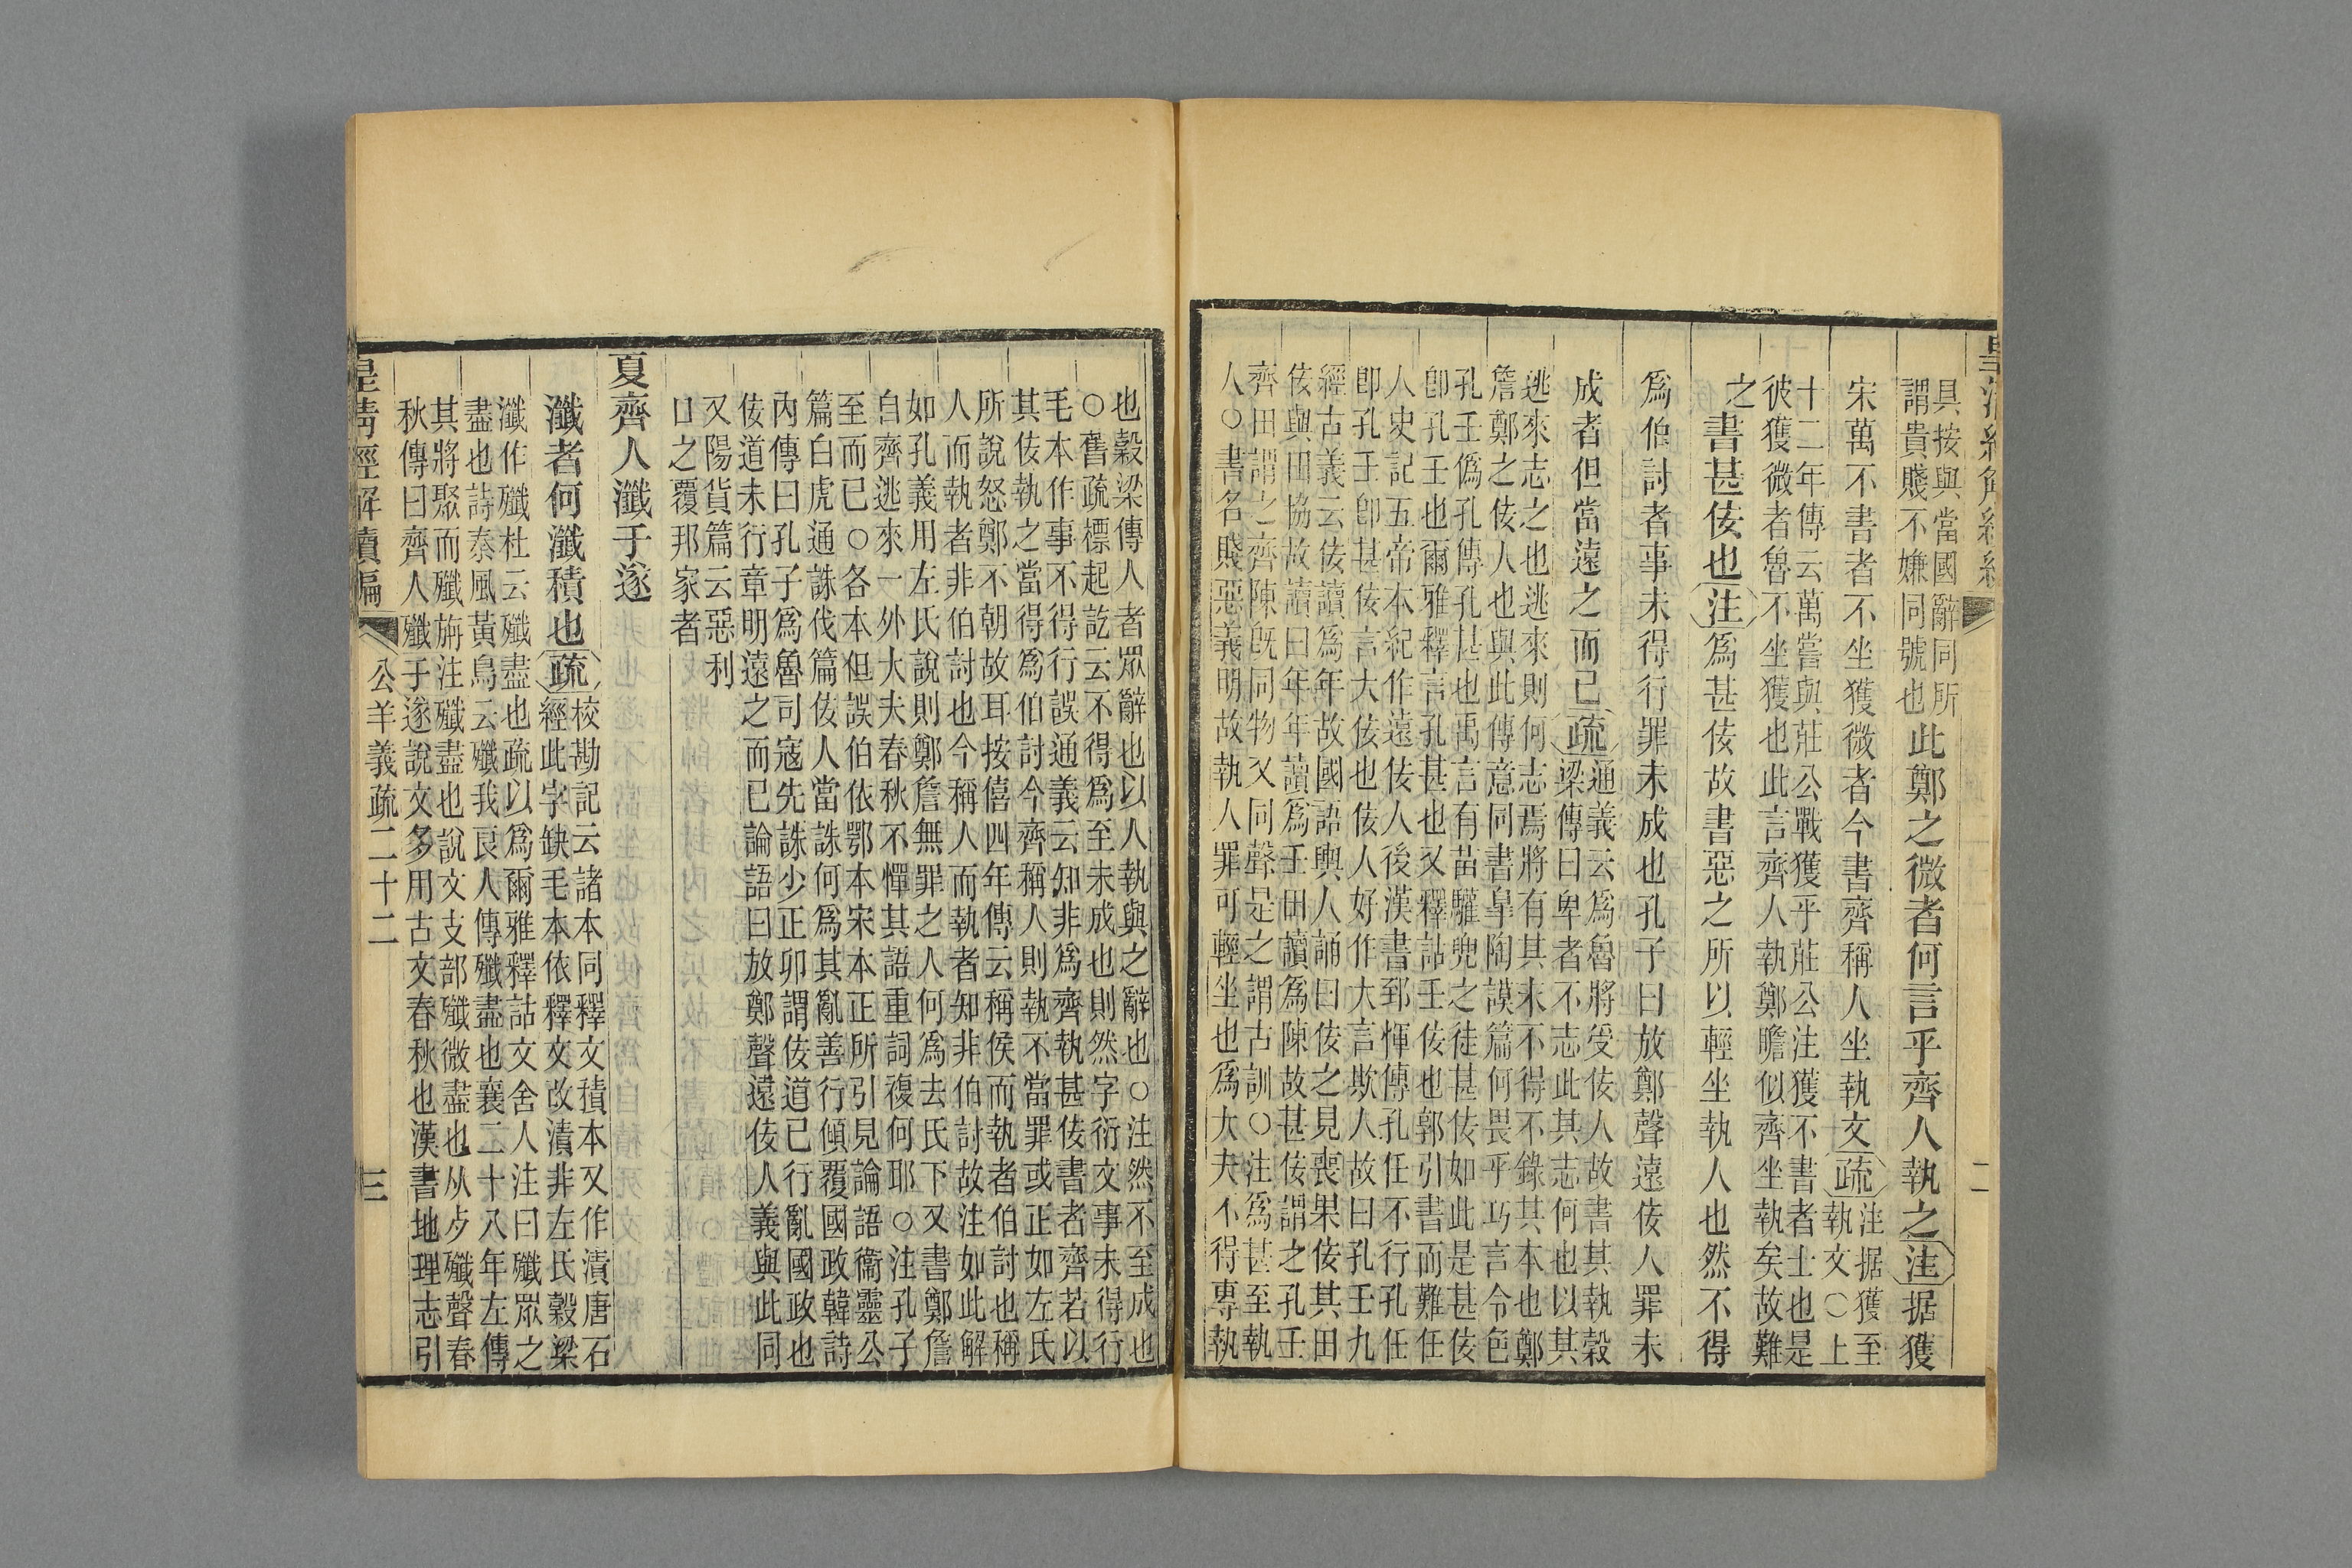 具按與當國辭同所
謂貴賤不嫌同號也
此鄭之微者何言乎齊人執之注据獲
宋萬不書者不坐獲微者今書齊稱人坐執文疏
注据獲至
執文○上
十二年傳云萬嘗與莊公戰獲乎莊公注獲不書者士也是
彼獲微者魯不坐獲也此言齊人執鄭瞻似齊坐執矣故難
之
書甚佞也注爲甚佞故書惡之所以輕坐執人也然不得
爲伯討者事未得行罪未成也孔子曰放鄭聲遠佞人罪未
成者但當遠之而已疏
通義云爲魯將受佞人故書其執穀
梁傳曰卑者不志此其志何也以其
逃來志之也逃來則何志焉將有其末不得不錄其本也鄭
詹鄭之佞人也與此傳意同書皐陶謨篇何畏乎巧言令色
孔壬僞孔傳孔甚也禹言有苗驩兜之徒甚佞如此是甚佞
卽孔壬也爾雅釋言孔甚也又釋詁壬佞也郭引書而難任
人史記五帝本紀作遠佞人後漢書郅惲傳孔任不行孔任
卽孔壬卽甚佞言大佞也佞人好作大言欺人故曰孔壬九
經古義云佞讀爲年故國語輿人誦曰佞之見喪果佞其田
佞與田協故讀曰年年讀爲壬田讀爲陳故甚佞謂之孔壬
齊田謂之齊陳旣同物又同聲是之謂古訓○注爲甚至執
人○書名賤惡義明故執人罪可輕坐也爲大夫不得專執
也穀梁傳人者眾辭也以人執與之辭也○注然不至成也
○舊疏標起訖云不得爲至未成也則然字衍文事未得行
毛本作事不得行誤通義云知非爲齊執甚佞書者齊若以
其佞執之當得爲伯討今齊稱人則執不當罪或正如左氏
所說怒鄭不朝故耳按僖四年傳云稱侯而執者伯討也稱
人而執者非伯討也今稱人而執者知非伯討故注如此解
如孔義用左氏說則鄭詹無罪之人何爲去氏下又書鄭詹
自齊逃來一外大夫春秋不憚其語重詞複何耶○注孔子
至而已○各本但誤伯依鄂本宋本正所引見論語衞靈公
篇白虎通誅伐篇佞人當誅何爲其亂善行傾覆國政韓詩
內傳曰孔子爲魯司寇先誅少正卯謂佞道已行亂國政也
佞道未行章明遠之而已論語曰放鄭聲遠佞人義與此同
又陽貨篇云惡利
口之覆邦家者
夏齊人瀸于遂
瀸者何瀸積也疏
校勘記云諸本同釋文積本又作漬唐石
經此字缺毛本依釋文改漬非左氏穀梁
瀸作殲杜云殲盡也疏以爲爾雅釋詁文舍人注曰殲眾之
盡也詩秦風黃鳥云殲我良人傳殲盡也襄二十八年左傳
其將聚而殲旃注殲盡也說文支部殲微盡也从歺韱聲春
秋傳曰齊人殲于遂說文多用古文春秋也漢書地理志引
皇清經解續編
公羊義疏二十二
三